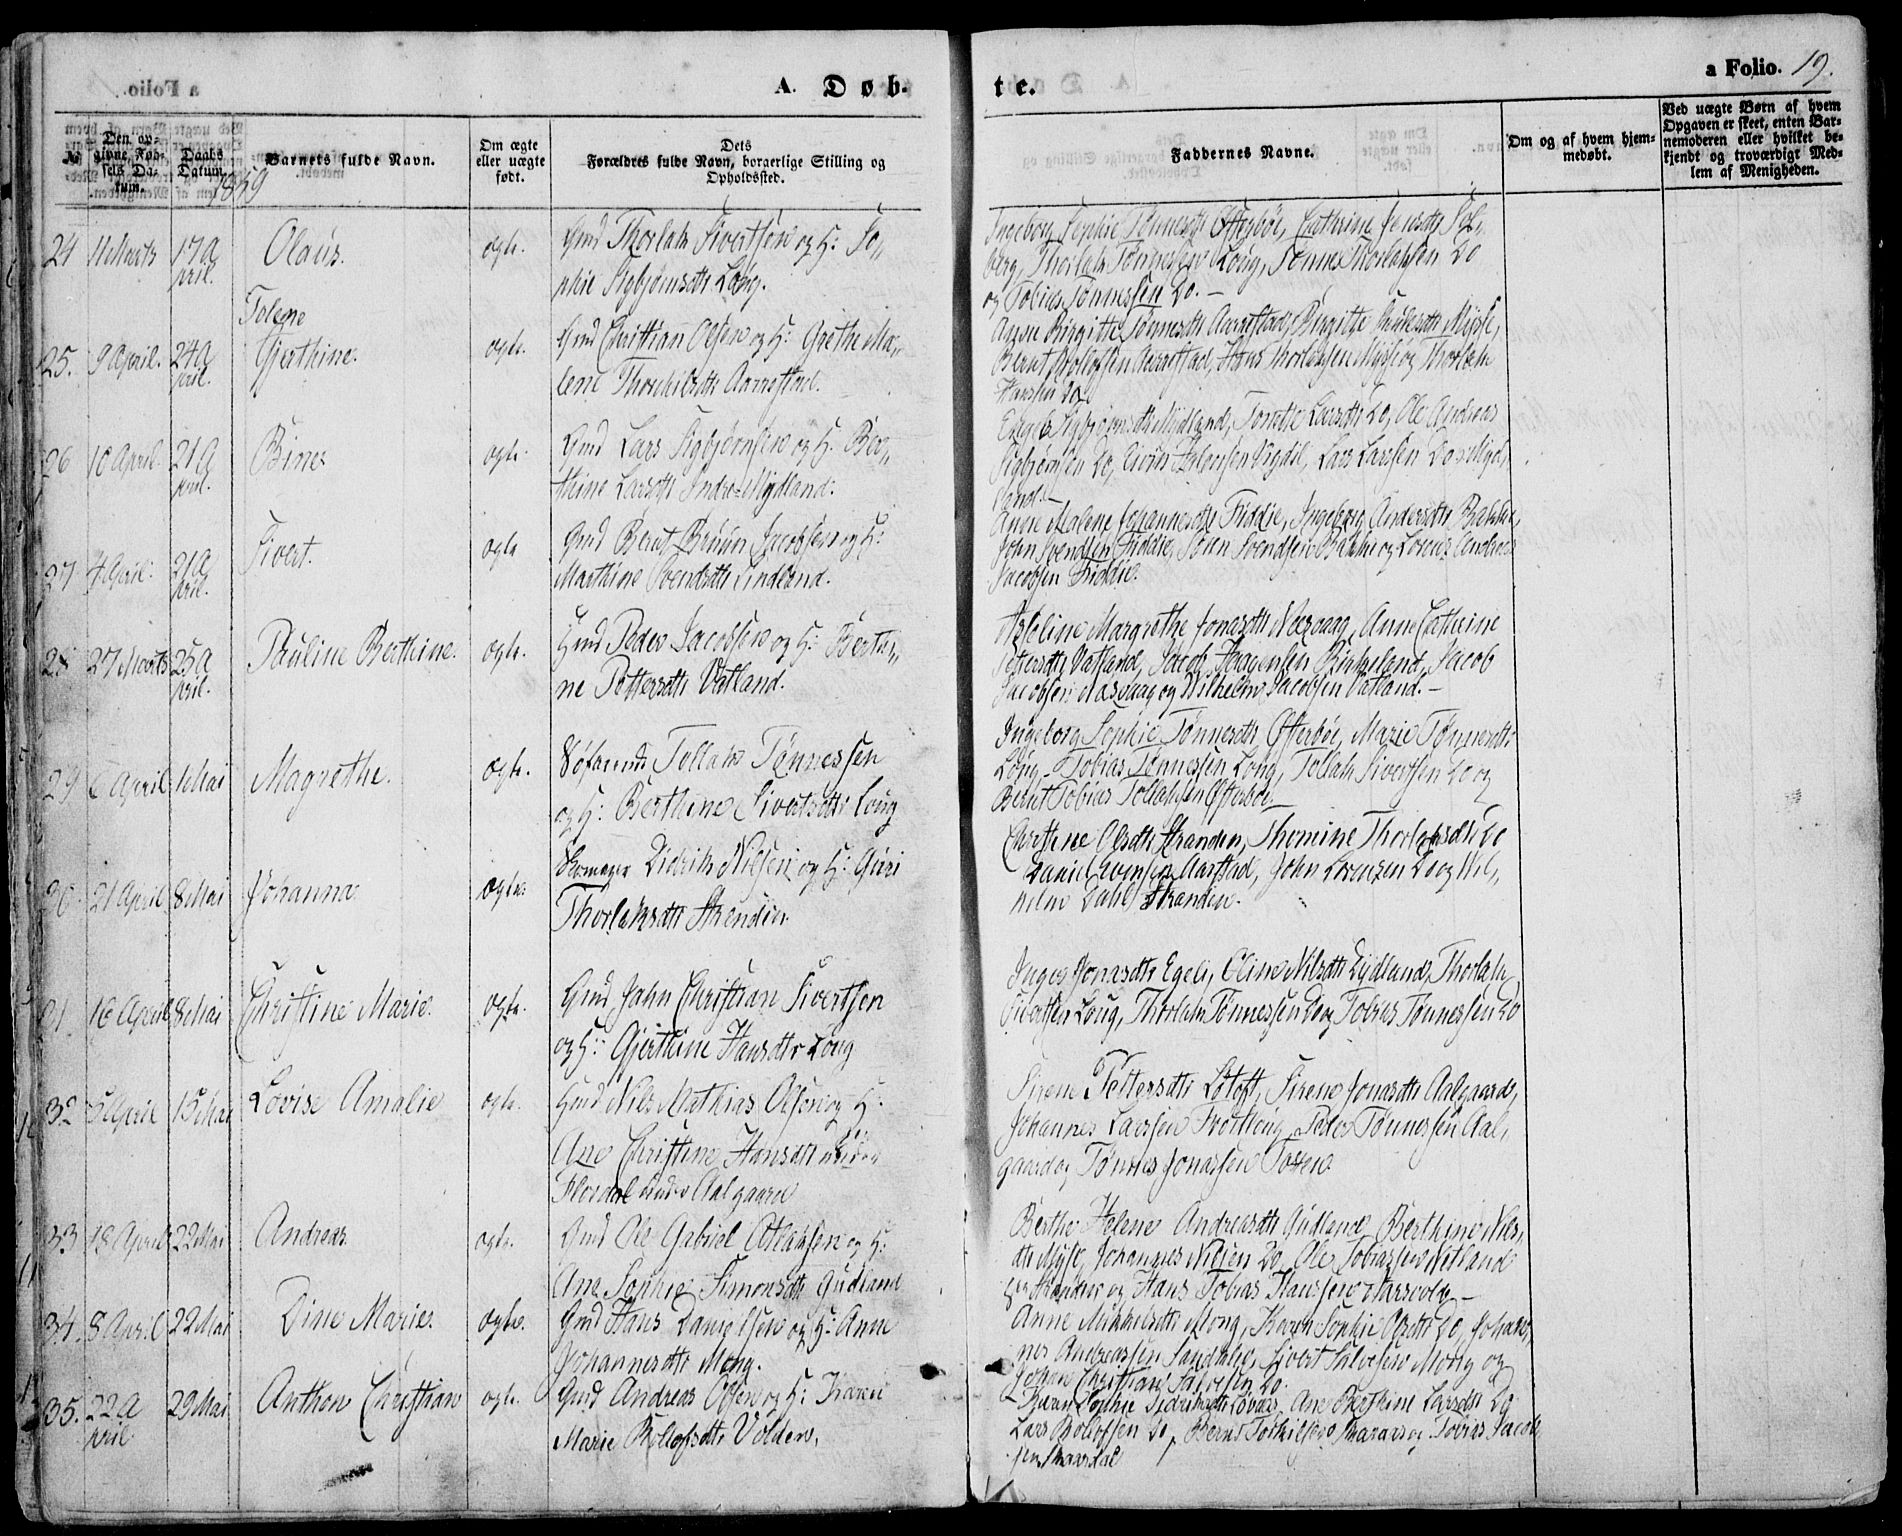 A. Døb-
te.
a Folio. 19.
No
Den opgivne Fødsels Datum.
Daabs Datum.
Barnets fulde Navn.
Om ægte eller uægte født.
Dets Forældres fulde Navn, borgerlige Stilling og Opholdssted.
Faddernes Navne.
Om og af hvem hjemmedøbt.
Ved uægte Børn af hvem Opgaven er skeet, enten Barnemoderen eller hvilket bekjendt og troværdigt Medlem af Menigheden.
1859
24 11 Marts 17 April. Olaus. ægte. Gmd Thorlak Sivertsen og H: Sophie Sigbjørnsdtr Long.
Ingeborg Sophie Tønnesdtr Østebøe, Cathrine Jensdtr
berg, Thorlak Tønnessen Long, Tønnes Thorlaksen Do
og Tobias Tønnessen Do. –
25. 9 April. 24 April. Tolene Gjerthine. ægte. Gmd Christian Olsen og H: Grethe Malene Thorkildsdtr Aarrestad.
Anne Birgitte Tønnesdtr Aarrestad, Birgitte Mysse,
Bernt Rolofsen Aarrestad, Hans Thorlaksen Mysse og Thorlak
Hansen Do
26 10 April. 21 April. Bine ægte. Gmd Lars Sigbjørnsen og H. Berthine Larsdtr Indre-Mydland.
Sigbjørnsdtr Mydland, Larsdtr Do, Ole Andreas
Sigbjørnsen Do, Lars Larsen Do Mydland. –
27 4 April. 21 April. Sivert. ægte Gmd Bernt Bruun Jacobsen og H: Marthine Svendsdtr Lindland.
Anne Malene Johannesdtr Fiddie, Ingeborg Andersdtr Bakke,
John Svendsen Fiddie, Søren Svendsen Bakke og Lorents Andreas
Jacobsen Fiddie.
28 27 Marts 25 April. Pauline Berthine. ægte. Gmd Peder Jacobsen og H: Berthine Pettersdtr Vatland.
Margrethe Jonasdtr, Anne Cathrine
Pettersdtr Vatland, Jacob Birkeland, Jacob
Jacobsen og Wilhelm Jacobsen Vatland. –
29 April 1 Mai Magrethe. ægte. Søfarende Tollak Tønnessen
og H: Berthine Sivertsdtr Long
Ingeborg Sophie Tønnesdtr Østerbøe, Marie Tønnesdtr
Long, Tobias Tønnessen Long, Tollak Sivertsen Do og
Bernt Tobias Tollaksen Østerbøe.
30. 21 April 8 Mai Johanna ægte. Skomager Didrik Nilsen og H: Guri
Thorlaksdtr Stranden.
Christine Olsdtr Stranden, Thomine Thorlaksdtr Do
Daniel Evensen Aarstad, John Lorenzen Do og Wilhelm Dahl Stranden.
31. 16 April 8 Mai Christine Marie. ægte. Gmd John Christian Sivertsen
og H: Gjerthine Hansdtr Long
Inger Jonasdtr Egeli, Oline Nilsdtr Lydland, Thorlak
Sivertsen Long, Thorlak Tønnessen Do og Tobias Tønnessen Do
32 5 April 15 Mai Lovise Amalie ægte. Gmd Nils Mathias Olsen og H:
Ane Christine Hansdtr
under Aalgaard
Sirene Pettersdtr Løtoft, Sirene Jonasdtr Aalgaard,
Johannes Larsen, Peder Tønnessen Aalgaard og Tønnes Jonassen
33 18 April 22 Mai Andreas ægte. Gmd Ole Gabriel Atlaksen og H:
Ane Sophie Simonsdtr Gudland
Berthe Helene Andreasdtr Gudland, Berthine Nilsdtr Myse, Johannes Nilsen Do, Ole Tobiassen Netland
og Hans Tobias Hanssen –
34. 8 April 22 Mai Dine Marie. ægte. Gmd Hans Danielsen og H: Anne
Johannesdtr Mong.
Anne Mikkelsdtr Mong, Karen Sophie Olsdtr Do, Johannes Andreassen Sandalie, Sivert Salvesen Mong og
Johan Christian Salvesen Do.
35. 22 April 29 Mai Anthon Christian ægte. Gmd Andreas Olsen og H: Karen
Marie Rolofsdtr Volden.
Karen Sophie Løvaas, Ane Berthine Larsdtr Do
Lars Rolofsen Do, Bernt Torkilsen og Tobias Jacobsen Skaardal